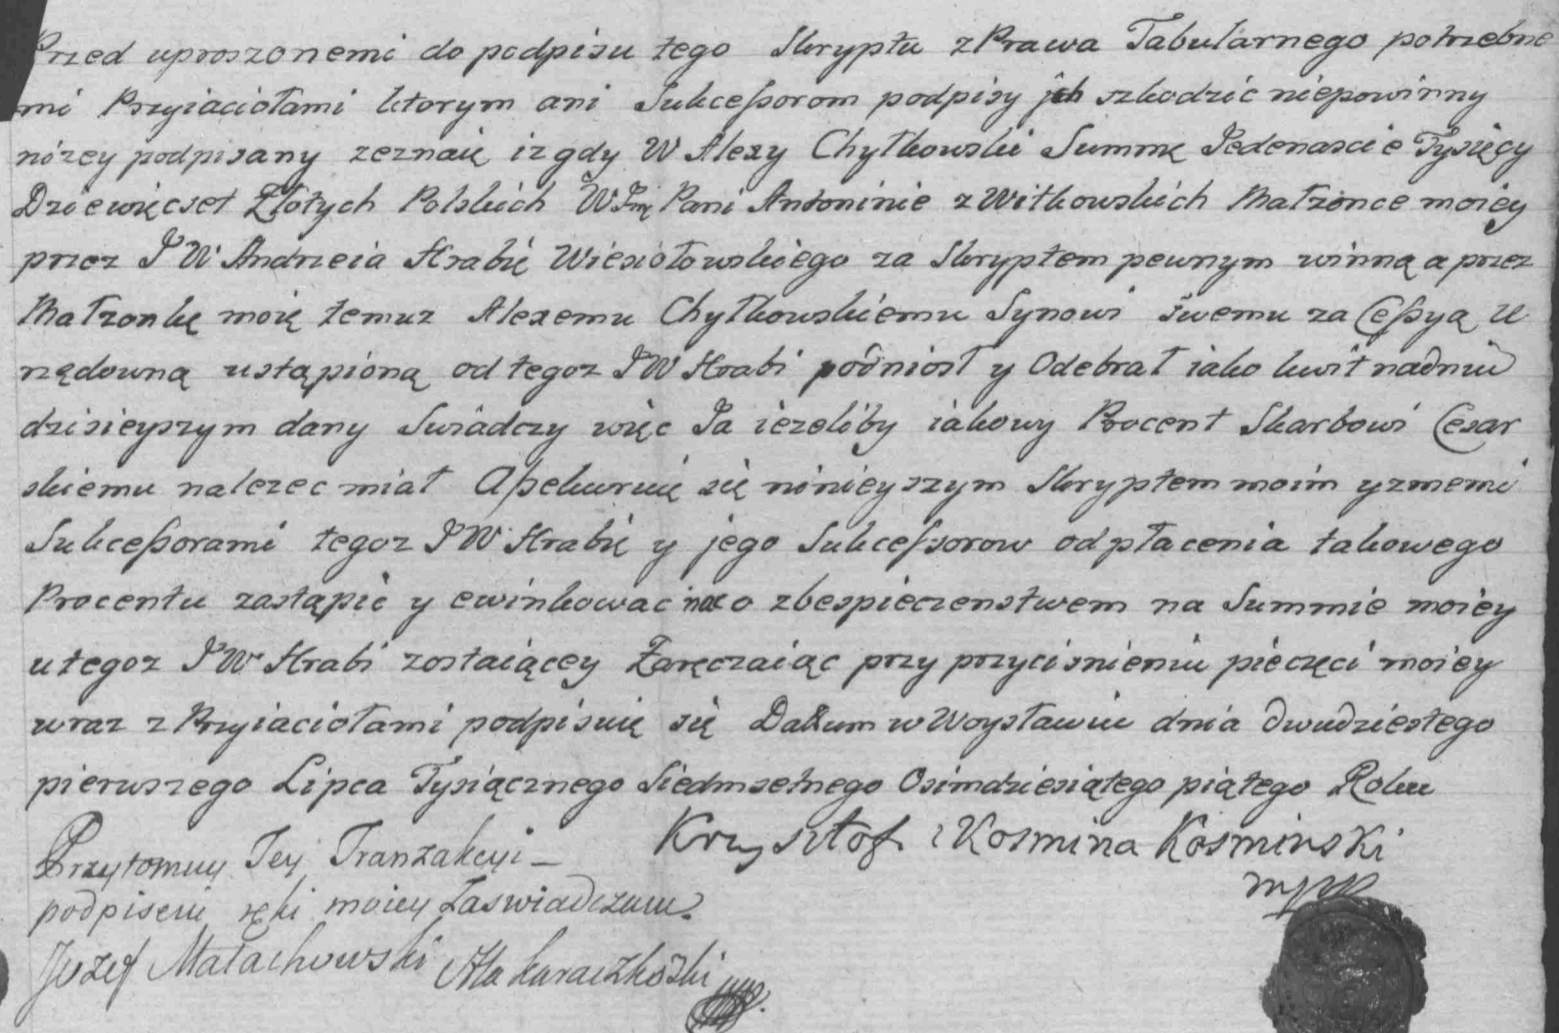 Przed uproszonemi do podpisu tego Skryptu z Prawa Tabularnego potrzebne
mi Przyiaciołami ktorym ani Sukceßorom podpisy jch szkodzić niepowinny
niżey podpisany zeznaię iz gdy W Alexy Chyłkowski Summę Jedenascie Tysięcy
Dziewięcset Złotych Polskich WJmę Pani Antoninie z Witkowskich Małżonce moiey
przez JW Andrzeia Hrabię Wiesiołowskiego za Skryptem pewnym winną a przez
Małzonkę moię temuz Alexemu Chyłkowskiemu Synowi swemu za Ceßyą U
rzędowną ustąpioną od tegoz JW Hrabi podniosł y Odebrał iako kwit nadniu
dzisieyszym dany Swiadczy więc Ja iezeliby iakowy Procent Skarbowi Cesar
skiemu nalezec miał Aßekuruię się ninieyszym Skryptem moim y zmemi
Sukceßorami tegoz JW Hrabię y jego Sukcessorow od płacenia takowego
Procentu zastąpić y ewinkowac o zbespieczenstwem na Summie moiey
u tegoz JW Hrabi zostaiącey Zaręczaiąc przy przycisnieniu pieczęci moiey
wraz z Przyiaciołami podpisuię się Datum w Woysławiu dnia dwudziestego
pierwszego Lipca Tysiącznego Siedmsetnego Osimdziesiątego piątego Roku
Krzysztof Kosmina Kosminski
mpp
Przytomny Tey Tranzakcyi –
podpisem ręki moiey Zaswiadczam.
Jozef Małachowski